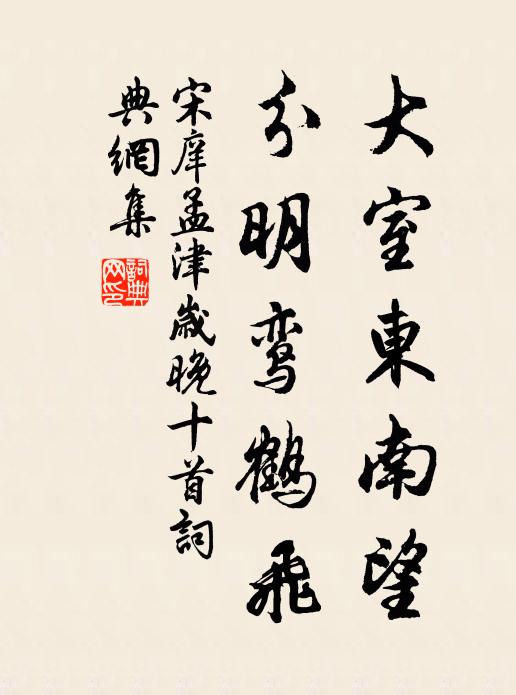 大室東南望
分明鸾鶴飛
宋庠孟津歲晚十首詞
典網集
詞典
网印